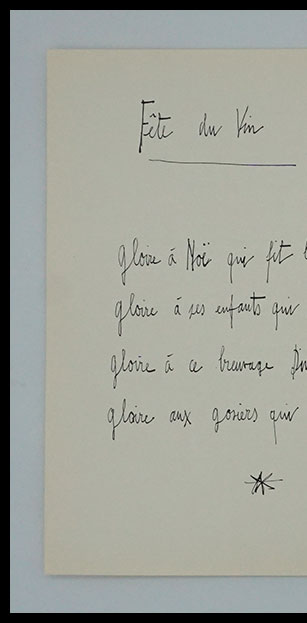 Fête du Vin
gloire à Noë qui fit
gloire à ses enfants qui
gloire à ce breuvage
gloire aux gosiers qui